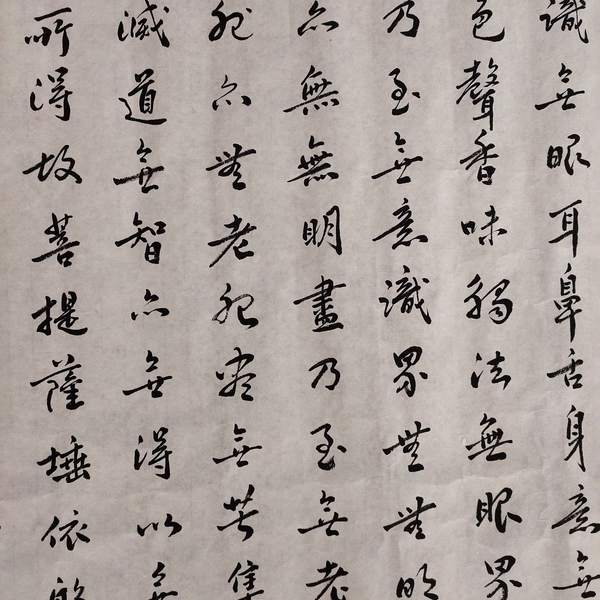 識無眼耳鼻舌身意無
色聲香味觸法無眼界
乃至無意識界無無明
亦無無明盡乃至無老
死亦無老死盡無苦集
滅道無智亦無得以無
所得故菩提薩埵依般